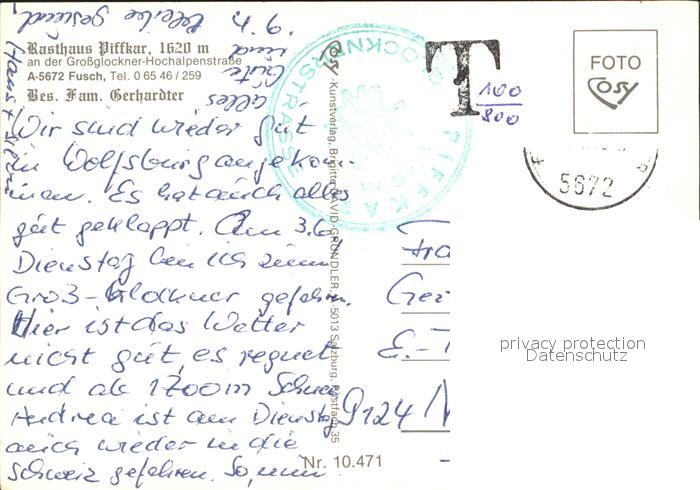 Rasthaus Piffkar, 1620 m
an der Großglockner-Hochalpenstraße
A-5672 Fusch, Tel. 0 65 46 / 259
Bes. Fam. Gerhardter
Wir sind wieder gut
in Wolfsburg angekom-
men. Es hat auch alles
gut geklappt. Am 3.6.
Dienstag bin ich zum
Groß-Glockner gefahren.
Hier ist das Wetter
nicht gut, es regnet
und ab 1700m Schnee
Andrea ist am Dienstag
auch wieder in die
Schweiz gefahren. So, nun
alles
Gute
und
bleibe gesund,
Hans
Cosy - Kunstverlag, Brigitte DAVID-GRÜNDLER, A-5013 Salzburg, Postfach 35
Nr. 10.471
GLOCKNERSTRASSE
PIFFKA
T
100
800
FOTO
Cosy
5672
Fra
Ger
E.-
9124
privacy protection
Datenschutz